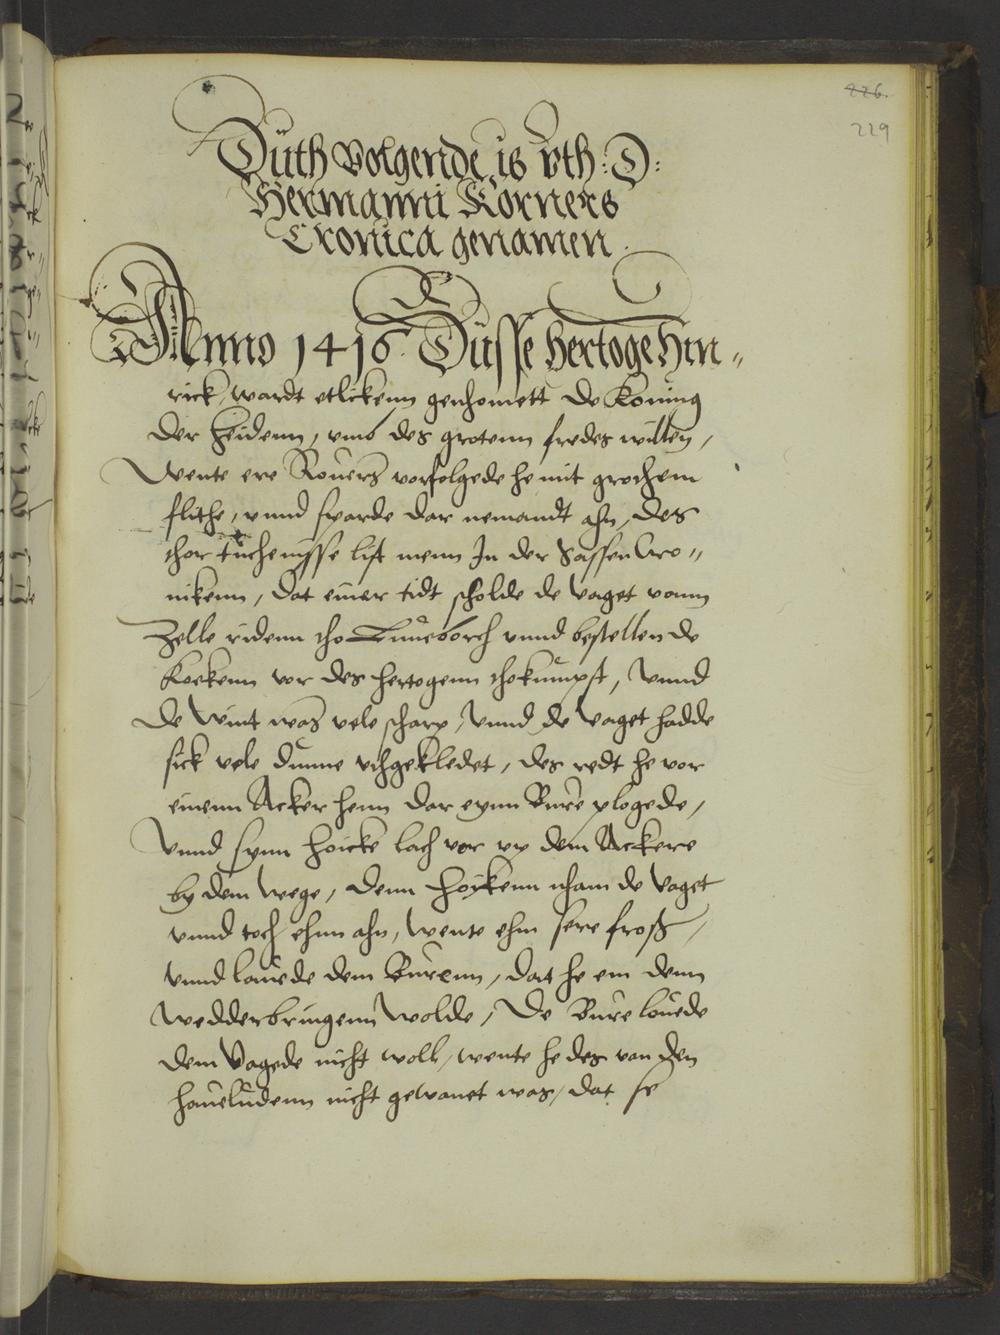 226.
229
Düth volgende is vth: D:
Hermanni Korners
Cronica genamen.
Anno 1416. Düsse hertoge Hin„
rick, wardt etlikenn genhomett de Koning
der Heidenn, vmb des grotenn fredes willen,
Wente ere Rouers vorfolgede he mit grothem
flithe, vnnd sparde dar nemandt ahn, des
thor tüchenisse list menn In der Sassen Cro„
nikenn, dat einer tidt scholde de Vaget vann
Zelle ridenn tho Lüneborch vnnd bestellen de
Koekenn vor des hertogenn thokumpst, Vnnd
de Wint was vele scharp, Vnnd de Vaget hadde
sick vele dünne vthgekledet, des redt he vor
einenn Acker henn dar eynn Bure plogede,
Vnnd synn hoicke lach vor vp dem Ackere
by dem Wege, denn hoykenn nham de Vaget
vnnd toch ehnn ahn, Wente ehm sere froß,
vnnd lauede dem Burenn, dat he em denn
Wedderbringenn Wolde, De Bure louede
dem Vagede nicht woll, wente he des van den
houelüdenn nicht gewanet was, dat se